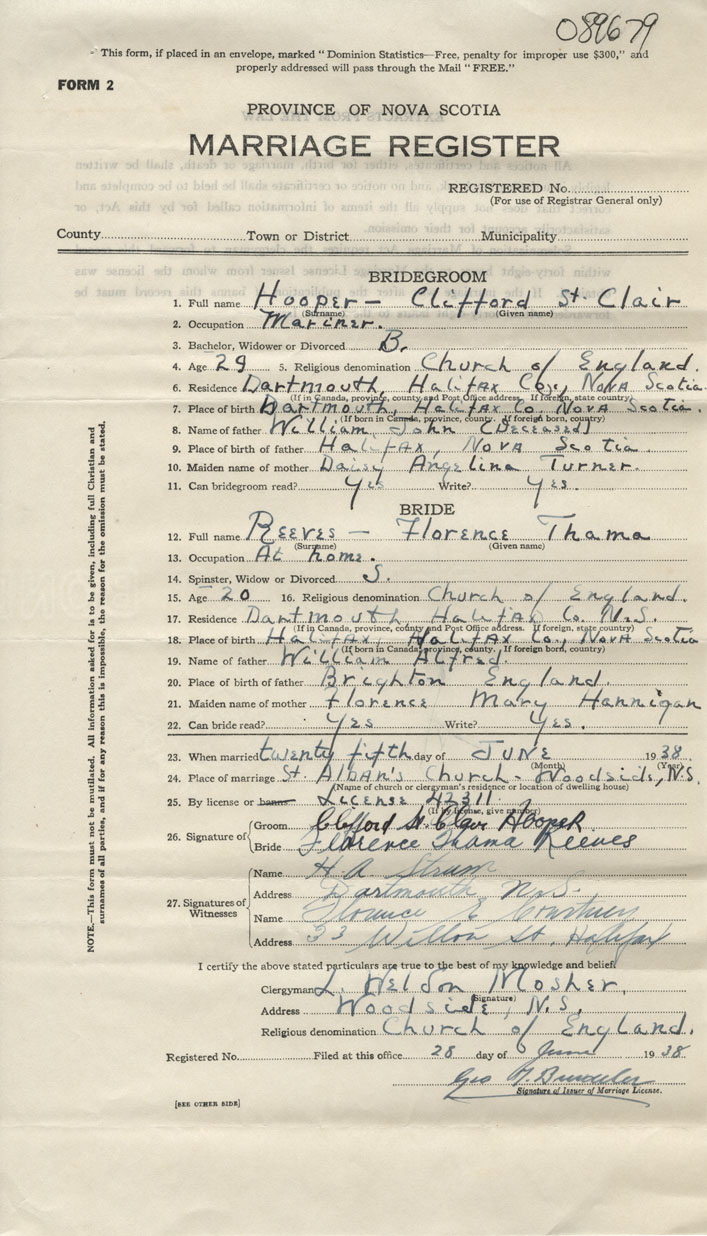 089679
- This form, if placed in an envelope, marked "Dominion Statistics—Free, penalty for improper use $300," and
properly addressed will pass through the Mail "FREE."
FORM 2
PROVINCE OF NOVA SCOTIA
MARRIAGE REGISTER
REGISTERED No.
(For use of Registrar General only)
County Town or District Municipality
BRIDEGROOM
1. Full name Hooper — Clifford St. Clair
(Surname) (Given name)
2. Occupation Mariner.
3. Bachelor, Widower or Divorced B.
4. Age 29 5. Religious denomination Church of England.
6. Residence Dartmouth, Halifax Co., Nova Scotia
(If in Canada, province, county and Post Office address. If foreign, state country)
7. Place of birth Dartmouth, Halifax Co. Nova Scotia.
(If born in Canada, province, county. If foreign born, country)
8. Name of father William John (Deceased)
9. Place of birth of father Halifax, Nova Scotia
10. Maiden name of mother Daisy Angelina Turner.
11. Can bridegroom read? Yes Write? Yes.
BRIDE
12. Full name Reeves — Florence Thama
(Surname) (Given name)
13. Occupation At home.
14. Spinster, Widow or Divorced S.
15. Age 20 16. Religious denomination Church of England.
17. Residence Dartmouth Halifax Co. N.S.
(If in Canada, province, county and Post Office address. If foreign, state country)
18. Place of birth Halifax, Halifax Co., Nova Scotia
(If born in Canada, province, county. If foreign born, country)
19. Name of father William Alfred.
20. Place of birth of father Brighton England.
21. Maiden name of mother Florence Mary Hannigan
22. Can bride read? Yes Write? Yes.
23. When married twenty fifth day of June 1938
(Month) (Year)
24. Place of marriage St. Alban's Church - Woodside, N.S.
(Name of church or clergyman's residence or location of dwelling house)
25. By license or banns License 42311
(If by license, give number)
26. Signature of
Groom Clifford St. Clair Hooper
Bride Florence Thama Reeves
27. Signatures of Witnesses
Name H A Strum
Address Dartmouth N.S.
Name Florence E Courtney
Address 33 St. Halifax
I certify the above stated particulars are true to the best of my knowledge and belief.
Clergyman L. Weldon Mosher,
(Signature)
Address Woodside, N.S.
Religious denomination Church of England.
Registered No. Filed at this office 28 day of June 1938
Geo
Signature of Issuer of Marriage License.
[SEE OTHER SIDE]
NOTE.—This form must not be mutilated. All information asked for is to be given, including full Christian and
surnames of all parties, and if for any reason this is impossible, the reason for the omission must be stated.